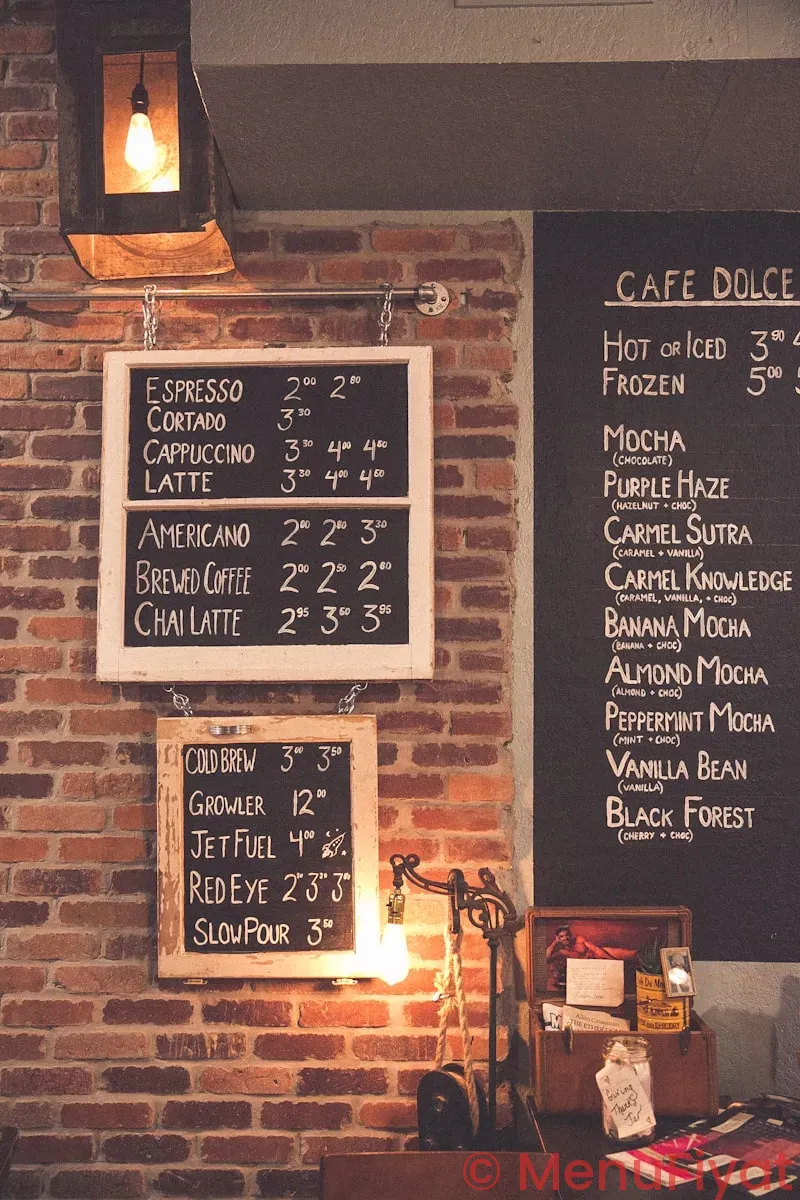 ESPRESSO 2⁰⁰ 2⁸⁰
CORTADO 3³⁰
CAPPUCCINO 3³⁰ 4⁰⁰ 4⁶⁰
LATTE 3³⁰ 4⁰⁰ 4⁵⁰
AMERICANO 2⁰⁰ 2⁸⁰ 3³⁰
BREWED COFFEE 2⁰⁰ 2⁵⁰ 2⁸⁰
CHAI LATTE 2⁹⁵ 3⁵⁰ 3⁹⁵
COLD BREW 3⁰⁰ 3⁵⁰
GROWLER 12⁰⁰
JET FUEL 4⁰⁰
RED EYE
SLOW POUR 3⁵⁰
CAFE DOLCE
HOT OR ICED 3⁹⁰
FROZEN 5⁰⁰
MOCHA
(CHOCOLATE)
PURPLE HAZE
(HAZELNUT + CHOC)
CARMEL SUTRA
(CARAMEL + VANILLA)
CARMEL KNOWLEDGE
(CARAMEL, VANILLA, + CHOC)
BANANA MOCHA
(BANANA + CHOC)
ALMOND MOCHA
(ALMOND + CHOC)
PEPPERMINT MOCHA
(MINT + CHOC)
VANILLA BEAN
(VANILLA)
BLACK FOREST
(CHERRY + CHOC)
Giving
Thanks
Jar
© MenuFiyat